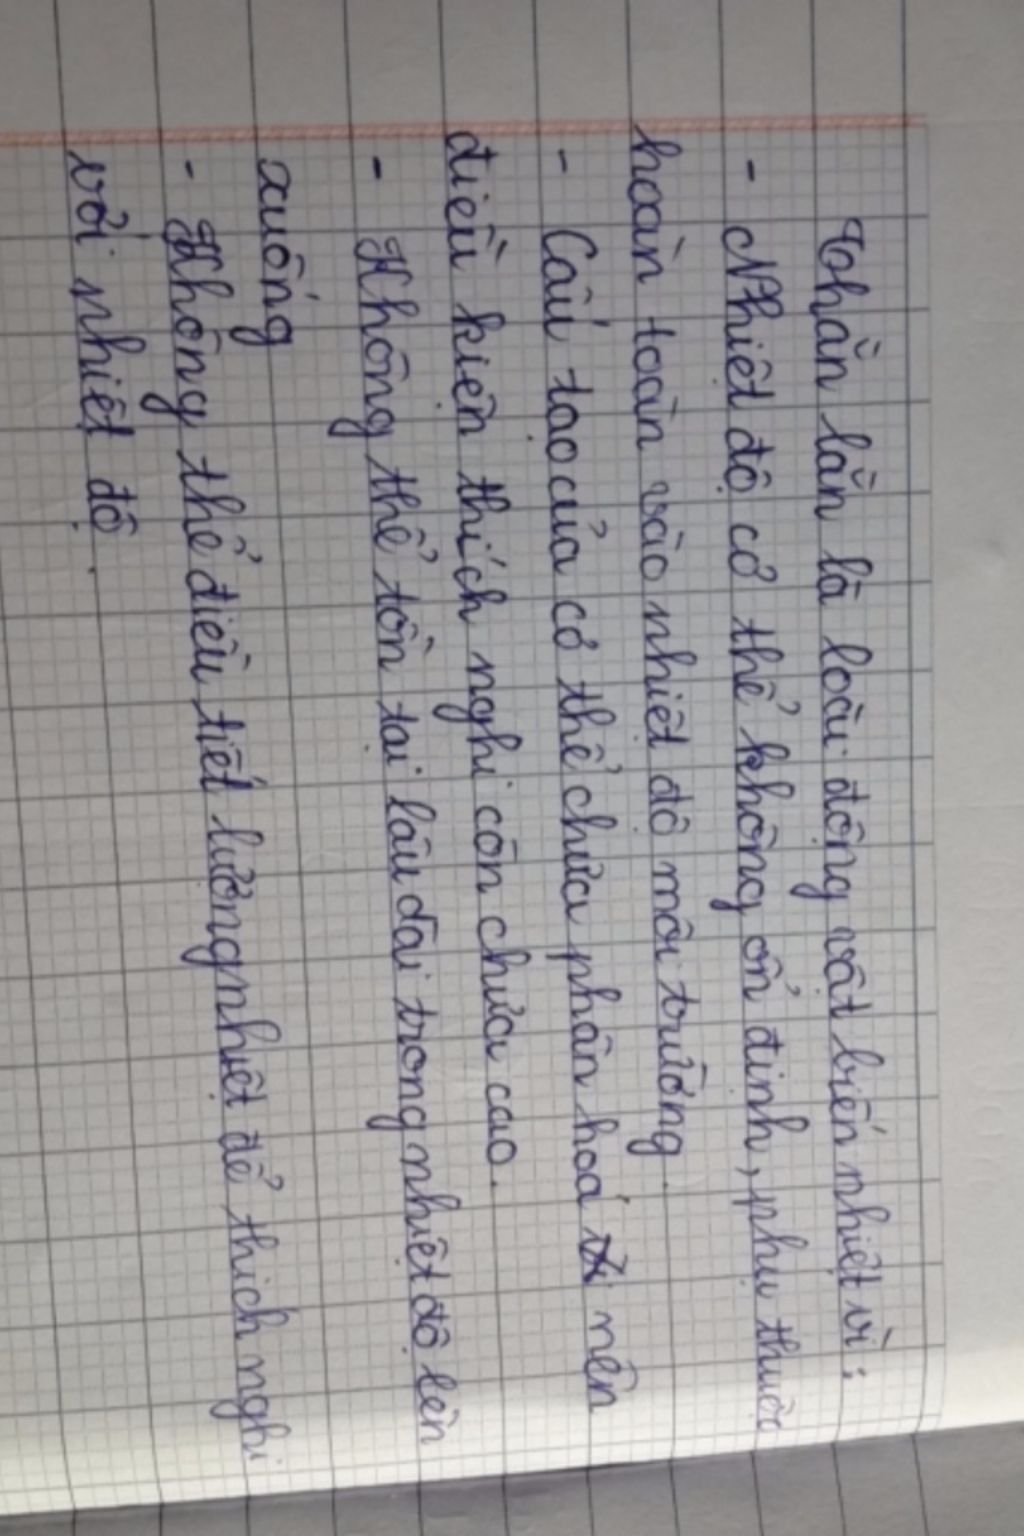 Thằn lằn là loài động vật biến nhiệt vì:
- Nhiệt độ cơ thể không ổn định, phụ thuộc
hoàn toàn vào nhiệt độ môi trường.
- Cấu tạo của cơ thể chưa phân hoá nên
điều kiện thích nghi còn chưa cao.
- Không thể tồn tại lâu dài trong nhiệt độ lên
xuống
- Không thể điều tiết lượng nhiệt để thích nghi
với nhiệt độ.